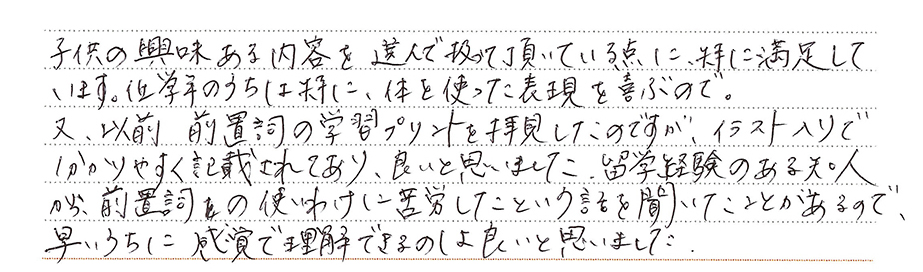 子供の興味ある内容を選んで扱って頂いている点に、特に満足して
います。低学年のうちは特に、体を使った表現を喜ぶので。
又、以前 前置詞の学習プリントを拝見したのですが、イラスト入りで
わかりやすく記載されてあり、良いと思いました。留学経験のある知人
が、前置詞の使いわけに苦労したという話を聞いたことがあるので、
早いうちに感覚で理解できるのは良いと思いました。